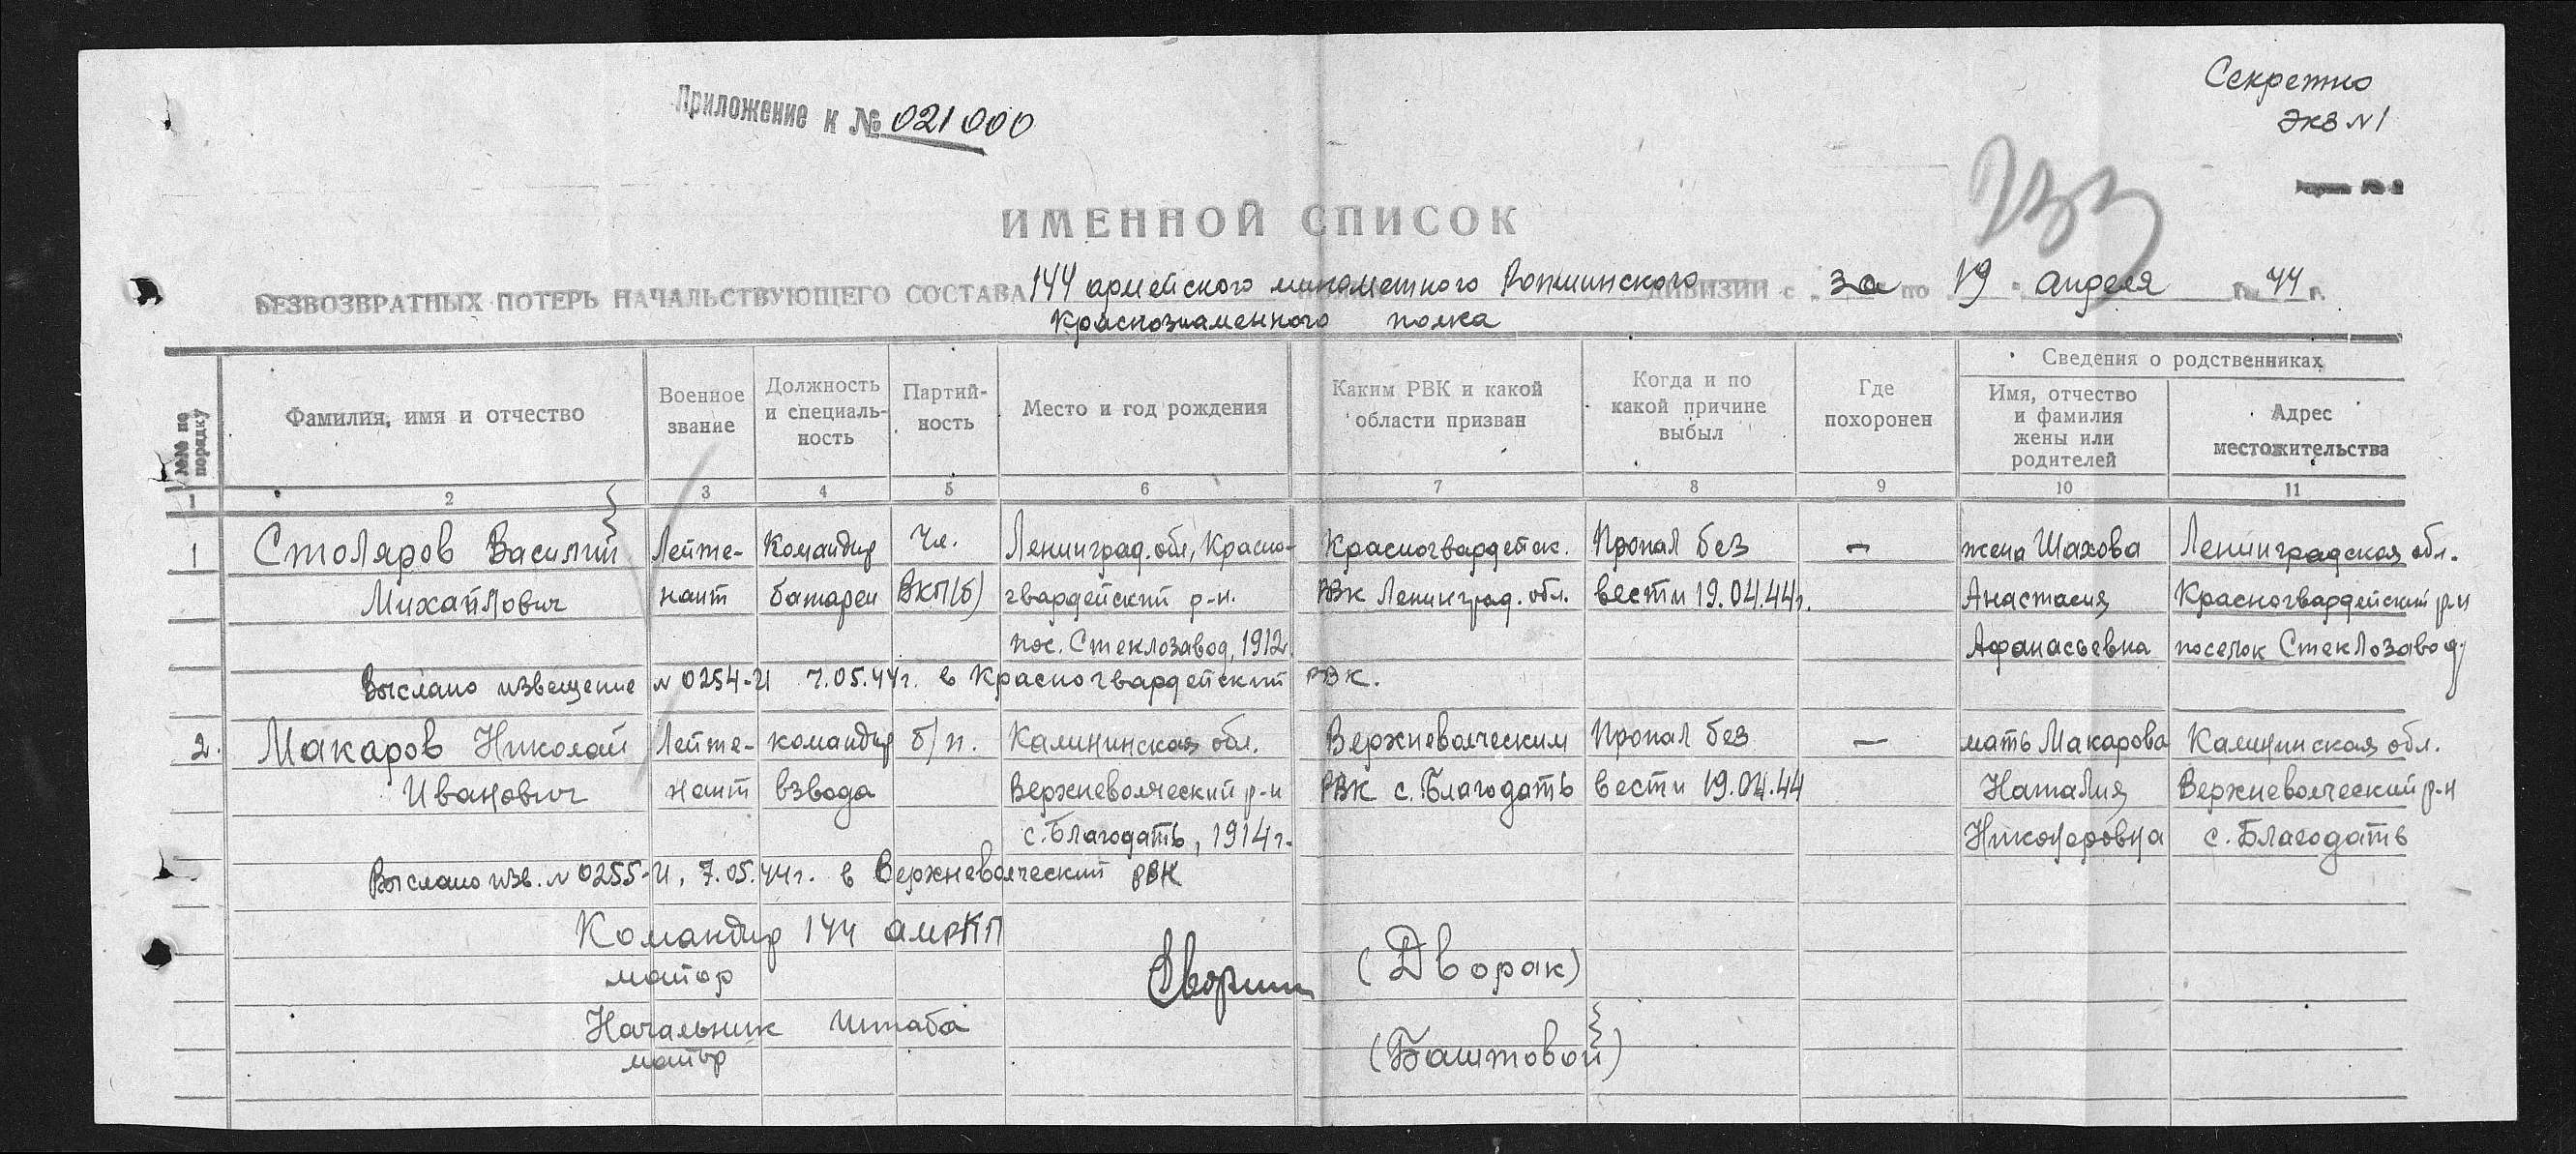 Секретно
Экз N 1
Приложение к № 021000
ИМЕННОЙ СПИСОК
БЕЗВОЗВРАТНЫХ ПОТЕРЬ НАЧАЛЬСТВУЮЩЕГО СОСТАВА 144 армейского минометного Ропшинского ДИВИЗИИ с за по 19 апреля 44 г.
Краснознаменного полка
№№ по порядку
Фамилия, имя и отчество
Военное звание
Должность и специаль-ность
Партий-ность
Место и год рождения
Каким РВК и какой области призван
Когда и по какой причине выбыл
Где похоронен
Сведения о родственниках
Имя, отчество и фамилия жены или родителей
Адрес местожительства
1 2 3 4 5 6 7 8 9 10 11
1 Столяров Василий Лейте- Командир Чл. Ленинград. обл, Красно- Красногвардейск. Пропал без — жена Шахова Ленинградская обл.
Михайлович нант батареи ВКП(б) гвардейский р-н. РВК Ленинград. обл. вести 19.04.44г. Анастасия Красногвардейский р-н
пос. Стеклозавод, 1912 Афанасьевна поселок Стеклозавод
Выслано извещение N 0254-И 7.05.44г. в Красногвардейский РВК.
2. Макаров Николай Лейте- командир б/п. Калининская обл. Верхневолческим Пропал без — мать Макарова Калининская обл.
Иванович нант взвода Верхневолческий р-н РВК с. Благодать вести 19.04.44 Наталия Верхневолческий р-н
с. Благодать, 1914г. Никоноровна с. Благодать
Выслано изв. N 0255-И, 7.05.44г. в Верхневолческий РВК
Командир 144 АМРКП
майор (Дворак)
Начальник штаба
майор (Баштовой)